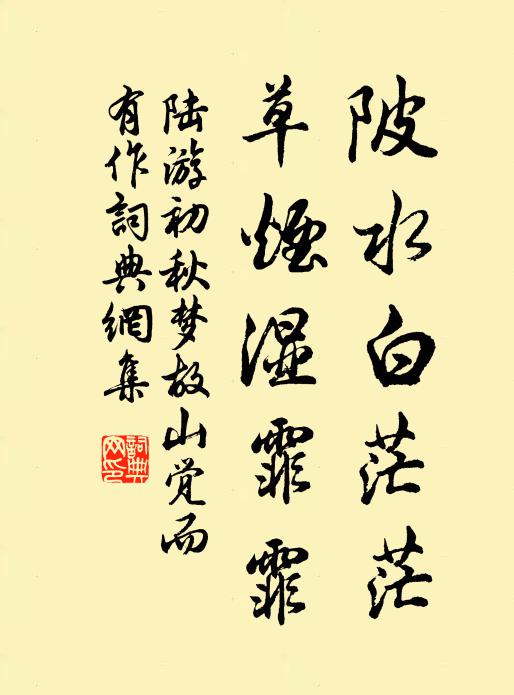 陂水白茫茫
草煙湿霏霏
陆游初秋梦故山觉而
有作詞典網集
詞典
网印